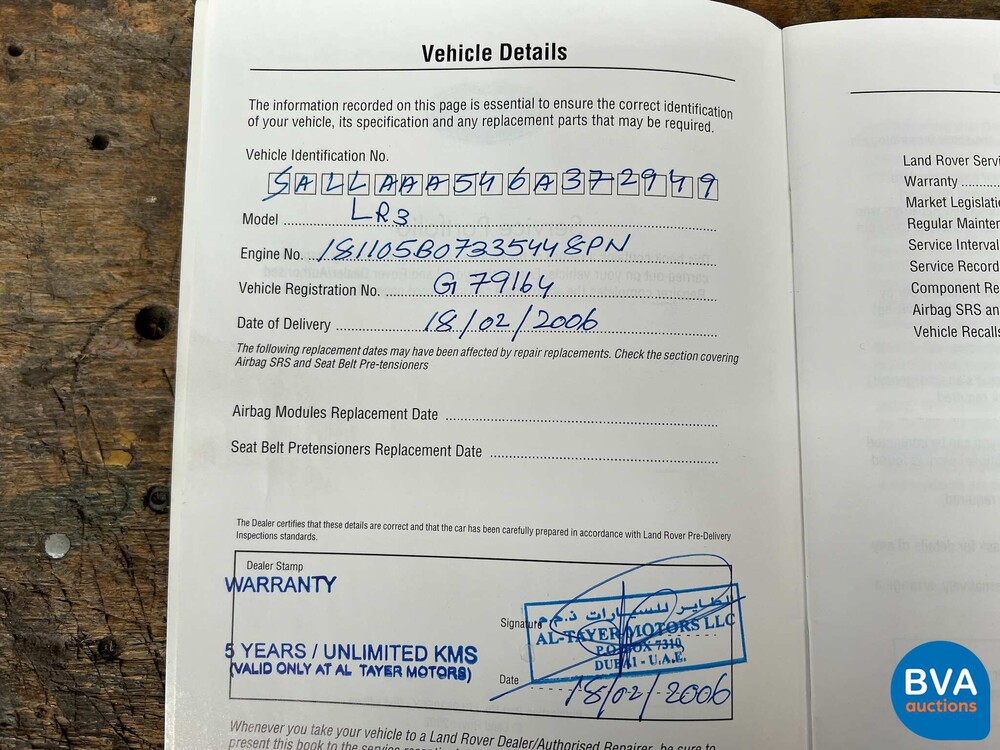 Vehicle Details
The information recorded on this page is essential to ensure the correct identification
of your vehicle, its specification and any replacement parts that may be required.
Vehicle Identification No.
SALLAAA546A372949
Model LR3
Engine No. 181105B0733544 8PN
Vehicle Registration No. G 79164
Date of Delivery 18/02/2006
The following replacement dates may have been affected by repair replacements. Check the section covering
Airbag SRS and Seat Belt Pre-tensioners
Airbag Modules Replacement Date
Seat Belt Pretensioners Replacement Date
The Dealer certifies that these details are correct and that the car has been carefully prepared in accordance with Land Rover Pre-Delivery
Inspections standards.
Dealer Stamp
WARRANTY
5 YEARS / UNLIMITED KMS
(VALID ONLY AT AL TAYER MOTORS)
Signature
الطاير للسيارات ذ.م.م
AL-TAYER MOTORS LLC
P.O.BOX 7310,
DUBAI - U.A.E.
Date 18/02/2006
Whenever you take your vehicle to a Land Rover Dealer/Authorised Repairer, be sure to
present this book to the service
Land Rover Servi
Warranty
Market Legislati
Regular Mainter
Service Interval
Service Record
Component Re
Airbag SRS an
Vehicle Recalls
BVA
auctions